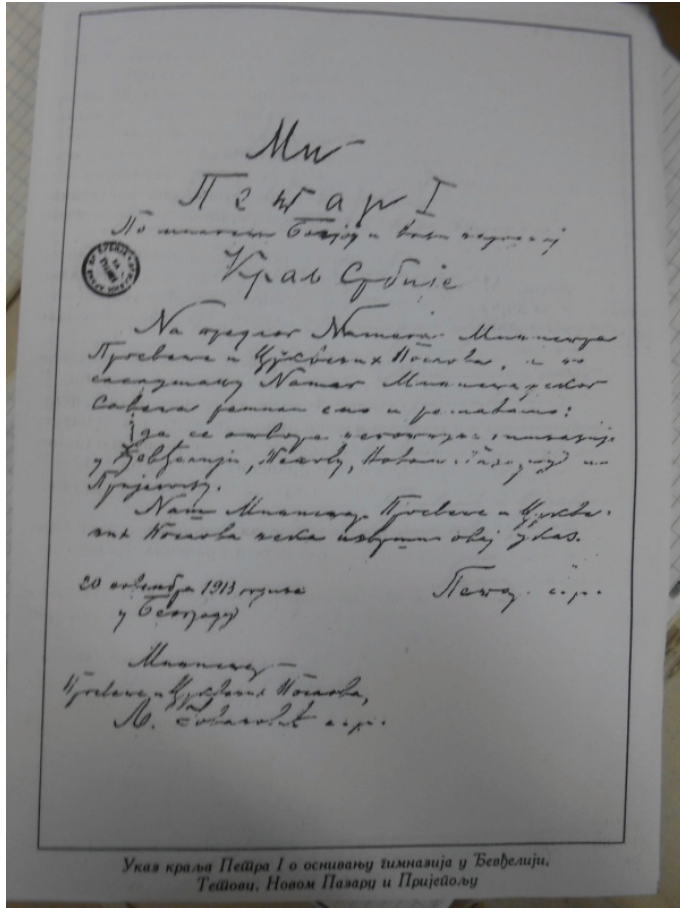 Ми
Петар I
По милости Божјој и вољи народној
Краљ Србије
На предлог Нашега Министра
Просвете и Црквених Послова, а по
саслушању Нашег Министарског
Савета решили смо и решавамо:
да се отвори гимназија
у Ђевђелији, Тетову, Новом Пазару и
Пријепољу.
Наш Министар Просвете и Цркве-
них Послова нека изврши овај указ.
20 новембра 1913 године
у Београду
Петар с.р.
Министар
Просвете и Црквених Послова,
Љ. Јовановић с.р.
Указ краља Петра I о оснивању гимназија у Ђевђелији,
Тетову, Новом Пазару и Пријепољу